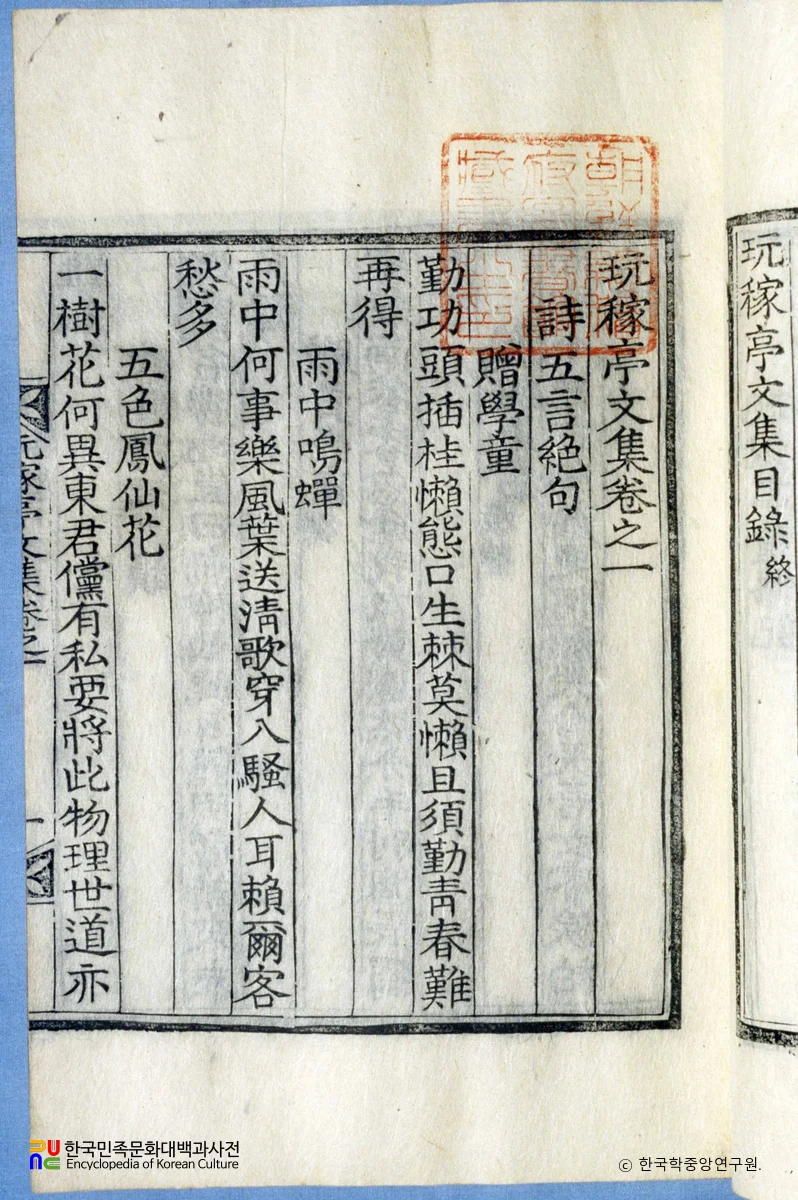 玩稼亭文集目錄 終
玩稼亭文集卷之一
詩五言絶句
贈學童
勤功頭插桂懶態口生棘莫懶且須勤靑春難
再得
雨中鳴蟬
雨中何事樂風葉送淸歌穿入騷人耳賴爾客
愁多
五色鳳仙花
一樹花何異東君儻有私要將此物理世道亦
玩稼亭文集卷之一 一
한국민족문화대백과사전
Encyclopedia of Korean Culture
© 한국학중앙연구원.